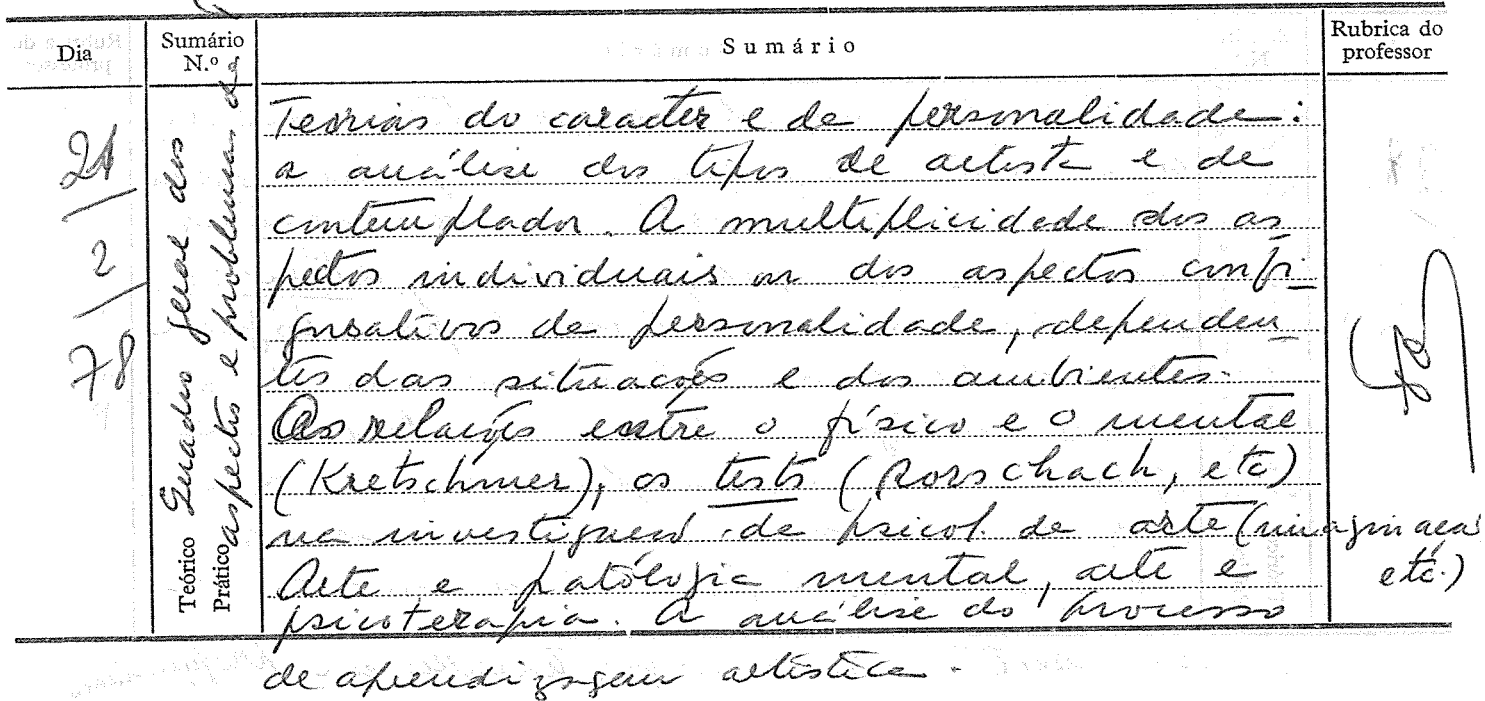 Dia
Sumário
N.º
Sumário
Rubrica do
professor
21
2
78
Teórico
Prático
Quadro geral dos
aspectos e problemas da
Teorias do caracter e da personalidade:
a análise dos tipos de artista e de
contemplador. A multiplicidade dos as
pectos individuais ou dos aspectos confi
gurativos da personalidade, dependen
tes das situações e dos ambientes.
As relações entre o físico e o mental
(Kretschmer), os tests (Rorschach, etc)
na investigação da psicol. da arte (imaginação
etc.)
Arte e patologia mental, arte e
psicoterapia. A análise do processo
de aprendizagem artística.